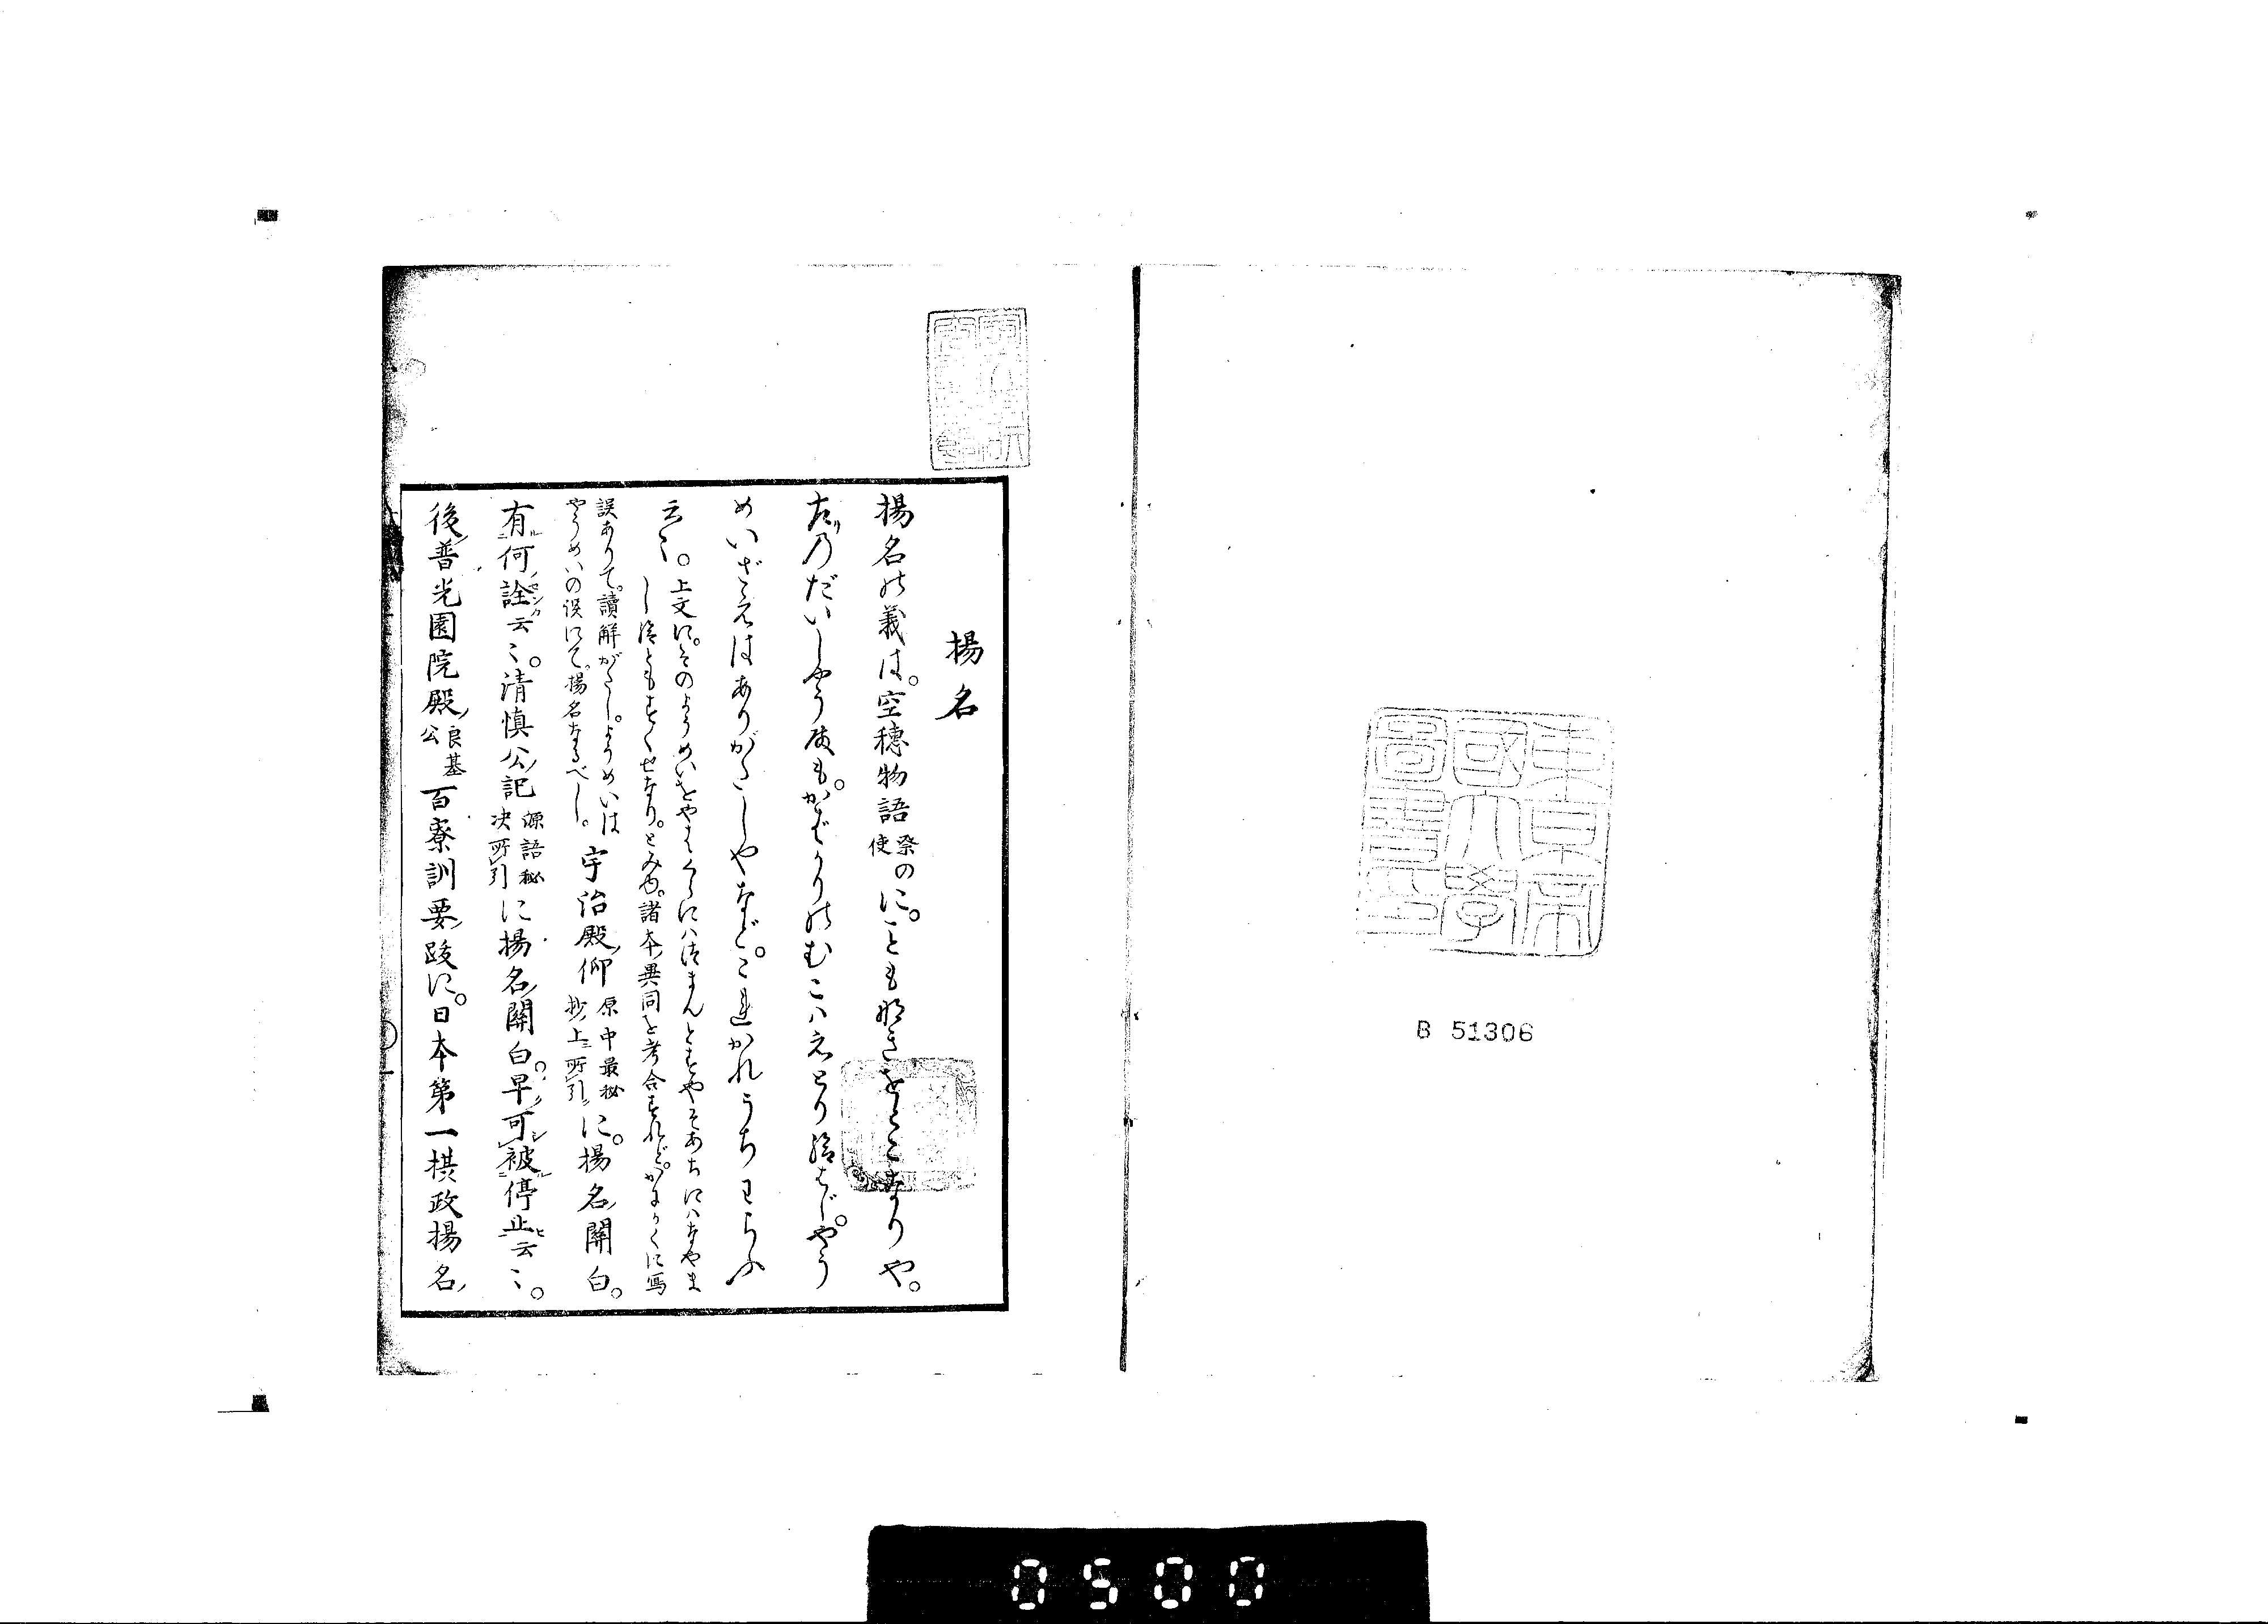 東京帝
國大學
圖書印
B 51306
揚名
揚名の義は。空穂物語祭の使に。ことも那きをとこなりや。
左乃だいしやう殿も。かばかりのむこハえとり給はじ。やう
めいざえはありがたしやなど。これかれうちわらふ
云〻。上文に。そのようめいをやもくらにハ侍まんとすやそあちにハなやま
し侍ともすくせなり。とみゆ。諸本異同を考合すれど。かにかくに寫
誤ありて。讀解がたし。ようめいは
やうめいの誤にて。揚名なるべし。宇治殿仰原中最秘抄上所引に。揚名關白。
有何詮云〻。清慎公記源語秘决所引に揚名關白。早可被停止云〻。
後普光園院殿良基公百寮訓要跋に。日本第一摂政揚名
0500